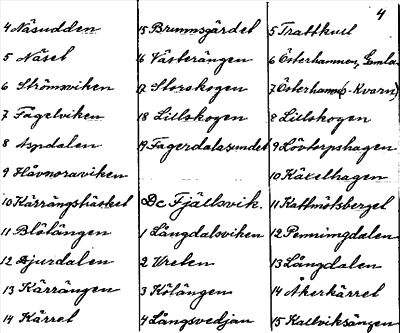 4
4 Näsudden
5 Näset
6 Strömviken
7 Fågelviken
8 Aspdalen
9 Håvnoraviken
10 Kärrängsbäcket
11 Blötängen
12 Djurdalen
13 Kärrängen
14 Kärret
15 Brunnsgärdet
16 Västerängen
17 Storskogen
18 Lillskogen
19 Fagerdalasundet
Dc Fjällsvik.
1 Långdalsviken
2 Vreten
3 Kölängen
4 Långsvedjan
5 Trattkull
6 Österhamnen, Gamla
7 Österhamn(s-Kvarn)
8 Lillskogen
9 Lövtorpshagen
10 Käxelhagen
11 Kattmötsberget
12 Penningdalen
13 Långdalen
14 Åkerkärret
15 Kallviksängen